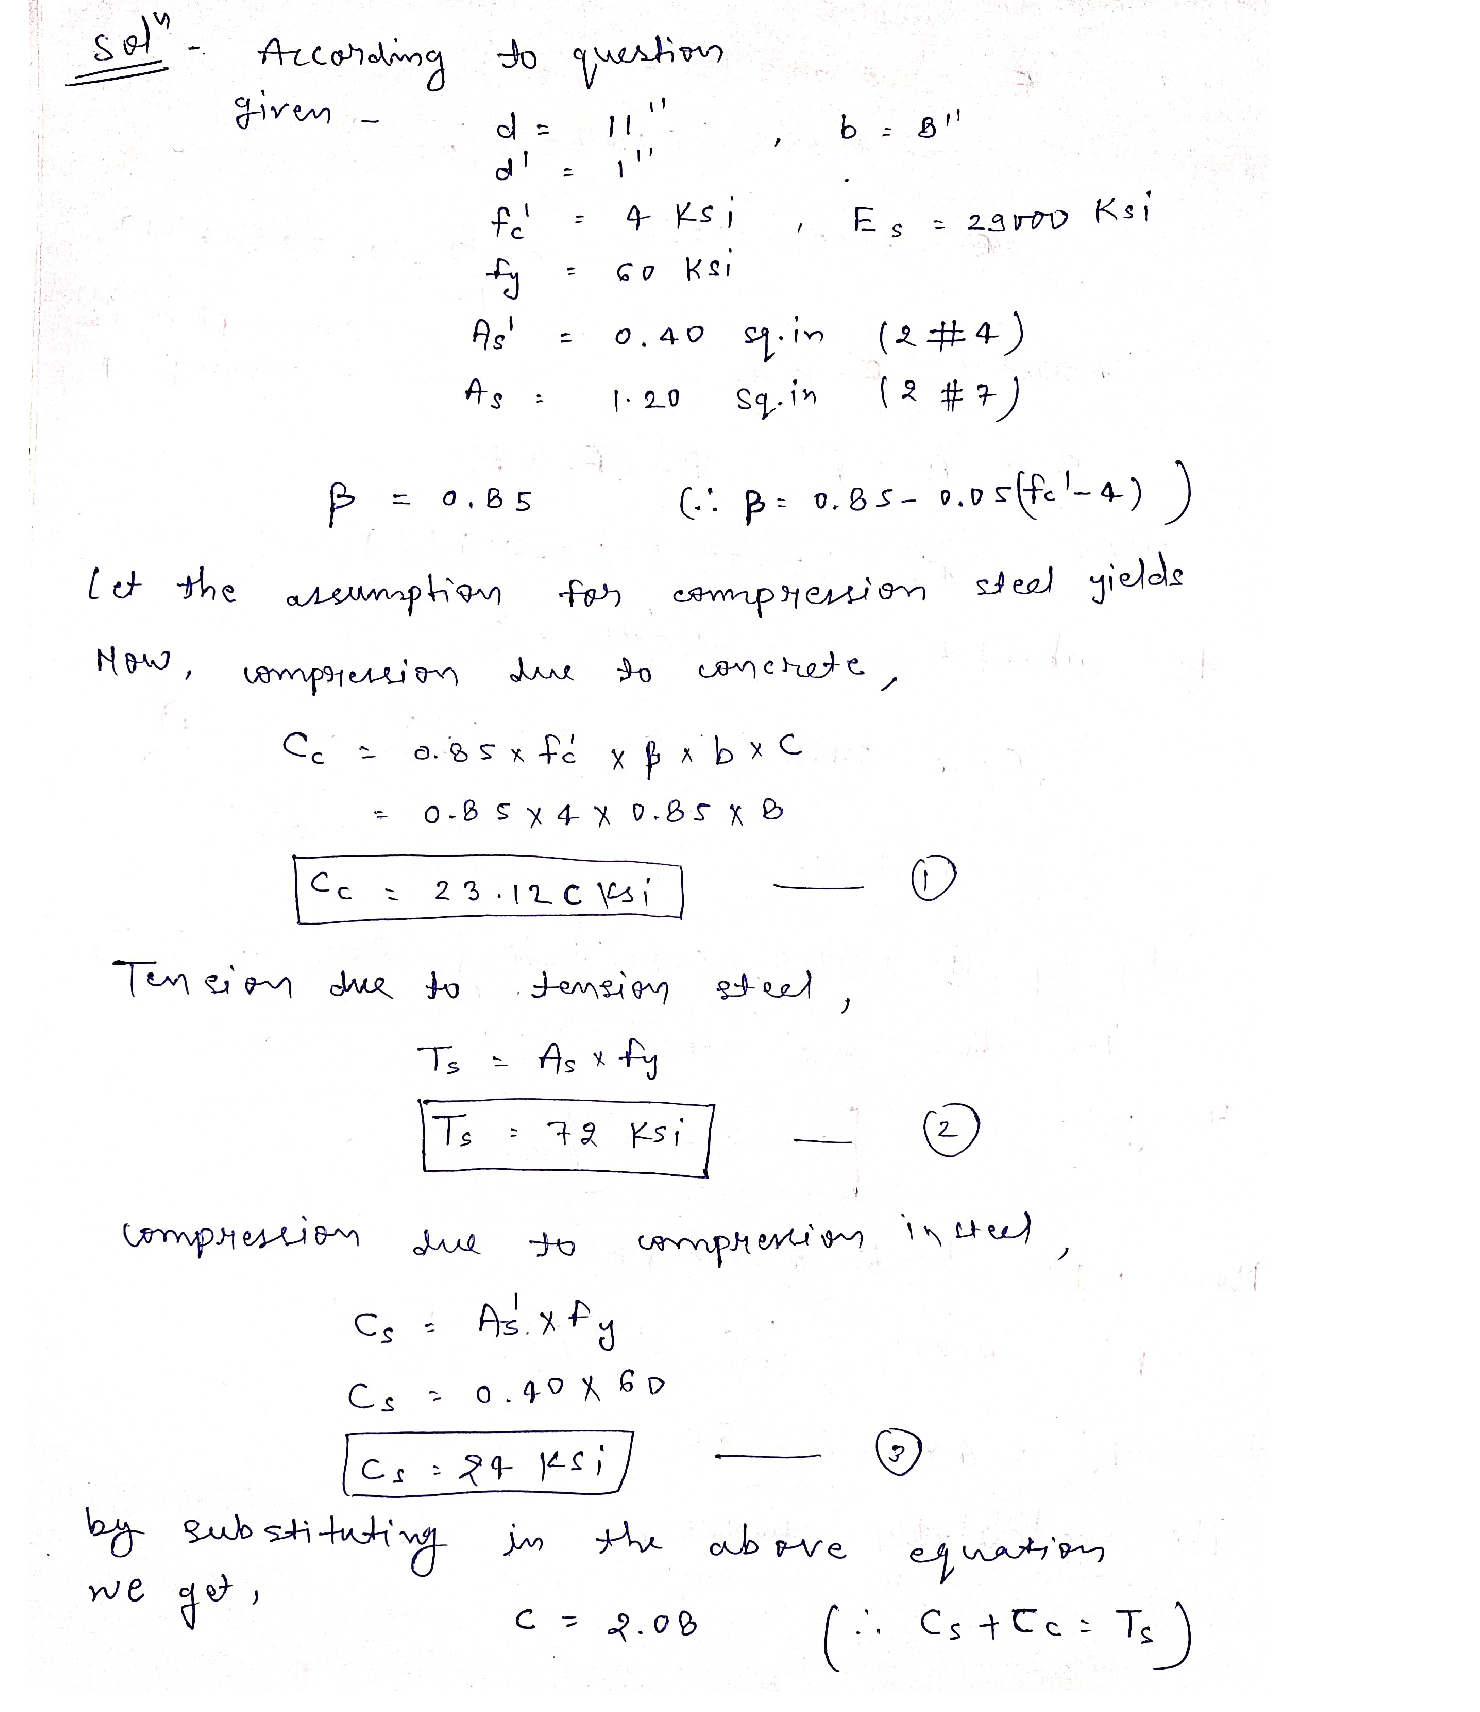 Solⁿ - According to question
given -
d = 11" , b = 8"
d' = 1"
fc' = 4 Ksi , Es = 29000 Ksi
fy = 60 Ksi
As' = 0.40 sq.in (2 #4)
As = 1.20 sq.in (2 #7)
β = 0.85 (∵ β = 0.85 - 0.05(fc'-4))
Let the assumption for compression steel yields
Now, compression due to concrete,
Cc = 0.85 x fc' x β x b x C
= 0.85 x 4 x 0.85 x 8
Cc = 23.12 C Ksi — ①
Tension due to tension steel,
Ts = As x fy
Ts = 72 Ksi — ②
compression due to compression in steel,
Cs = As' x fy
Cs = 0.40 x 60
Cs = 24 Ksi — ③
by substituting in the above equation
we get,
C = 2.08 (∴ Cs + Cc = Ts)